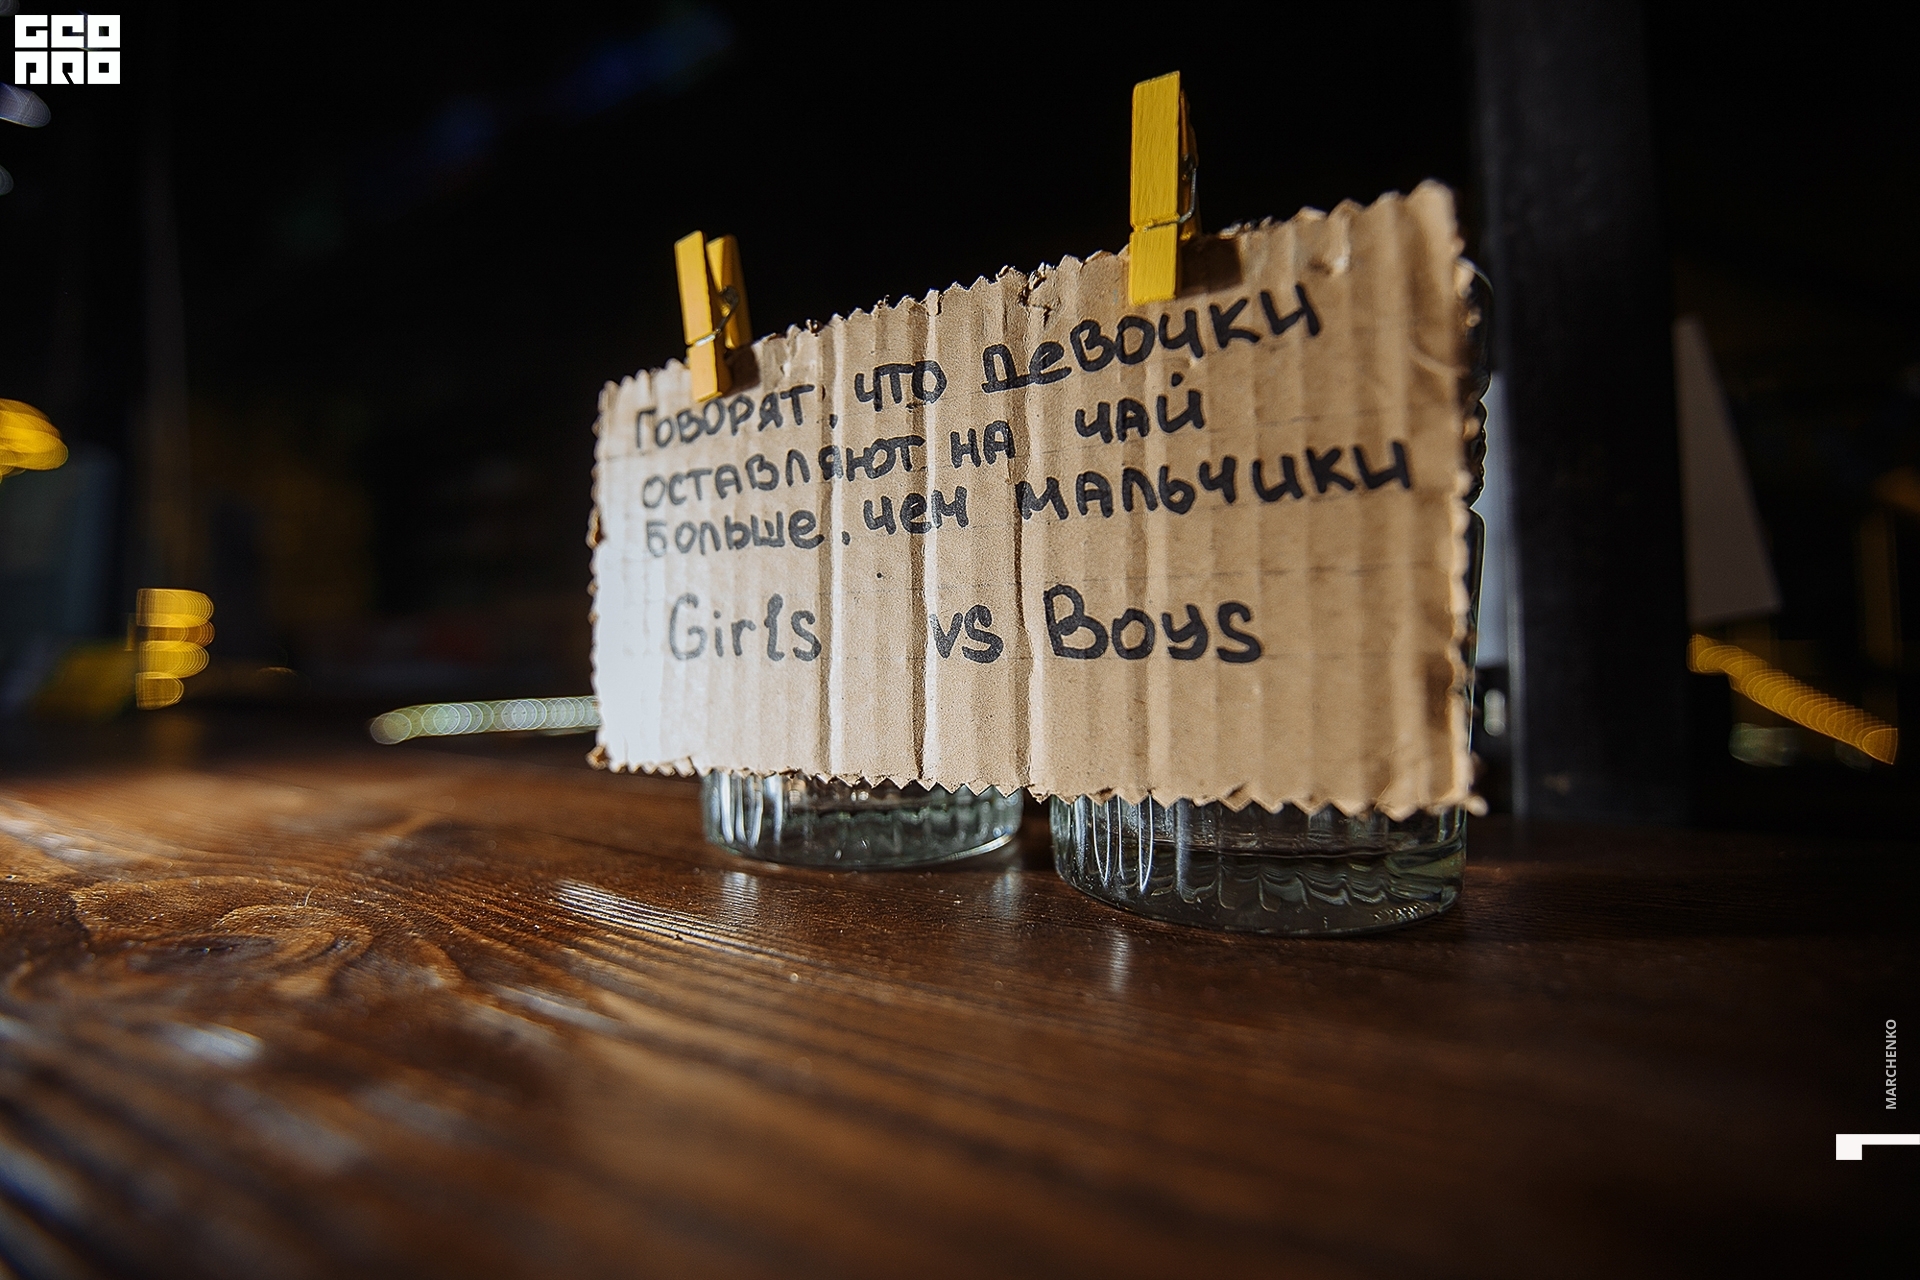 GEO
PRO
Говорят, что девочки
оставляют на чай
больше, чем мальчики
Girls vs Boys
MARCHENKO